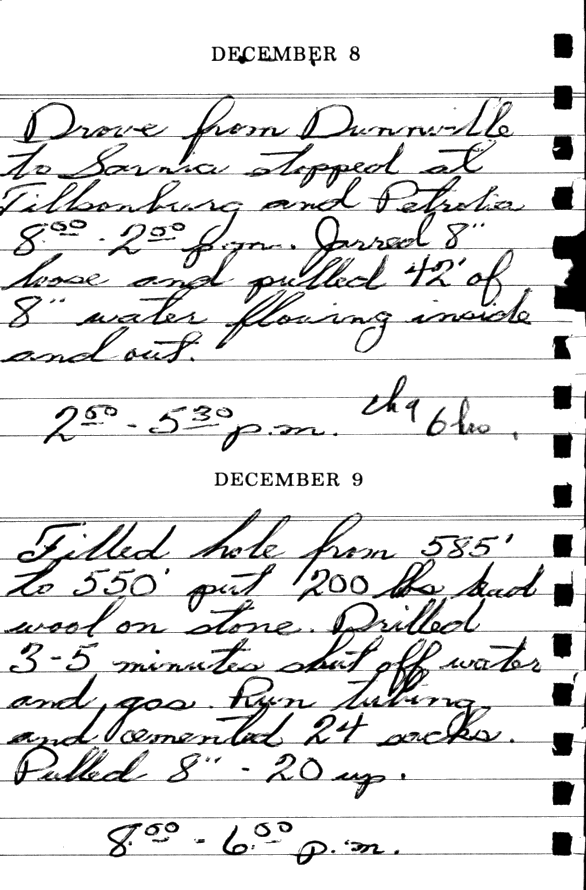 DECEMBER 8
Drove from Dunnville
to Sarnia stopped at
Tillsonburg and Petrolia
8:00 - 2:00 p.m. Jarred 8"
loose and pulled 42' of
8" water flowing inside
and out.
2:00 - 5:30 p.m. chg 6 hrs.
DECEMBER 9
Filled hole from 585'
to 550' put 200 lbs lead
wool on stone. Drilled
3-5 minutes shut off water
and gas. Run tubing
and cemented 24 sacks.
Pulled 8" - 20 up.
8:00 - 6:00 p.m.